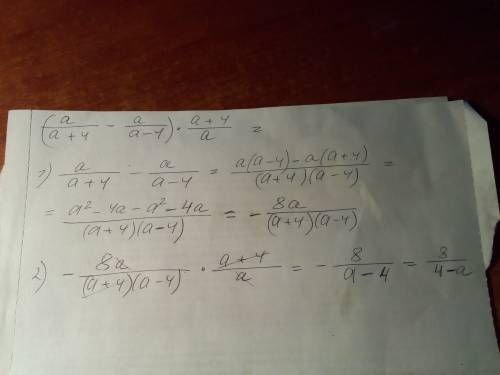 (a/(a+4) - a/(a-4)) · (a+4)/a =
1) a/(a+4) - a/(a-4) = (a(a-4)-a(a+4))/((a+4)(a-4)) =
= (a²-4a-a²-4a)/((a+4)(a-4)) = - 8a/((a+4)(a-4))
2) - 8a/((a+4)(a-4)) · (a+4)/a = - 8/(a-4) = 8/(4-a)